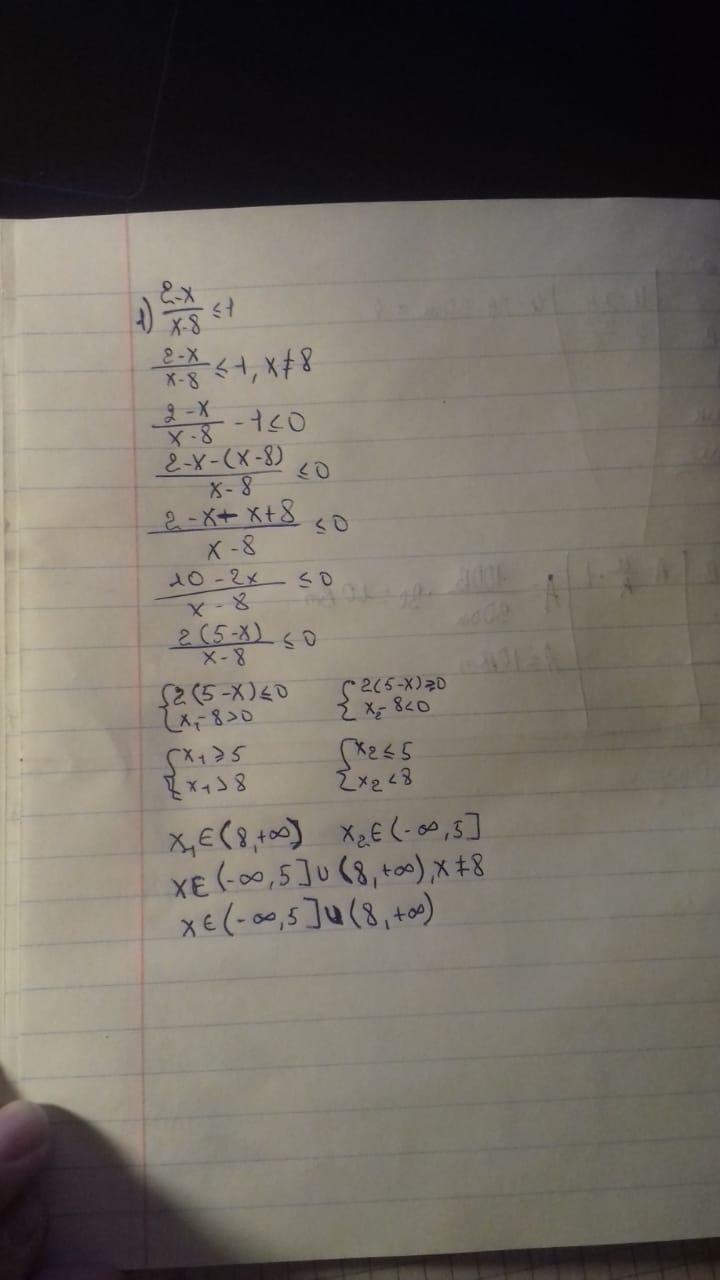 1) (2-x)/(x-8) ≤ 1
(2-x)/(x-8) ≤ 1, x≠8
(2-x)/(x-8) - 1 ≤ 0
(2-x-(x-8))/(x-8) ≤ 0
(2-x+x+8)/(x-8) ≤ 0
(10-2x)/(x-8) ≤ 0
(2(5-x))/(x-8) ≤ 0
{2(5-x)≤0 {2(5-x)≥0
{x₁-8>0 {x₂-8<0
{x₁≥5 {x₂≤5
{x₁>8 {x₂<8
x₁∈(8,+∞) x₂∈(-∞,5]
x∈(-∞,5]∪(8,+∞), x≠8
x∈(-∞,5]∪(8,+∞)